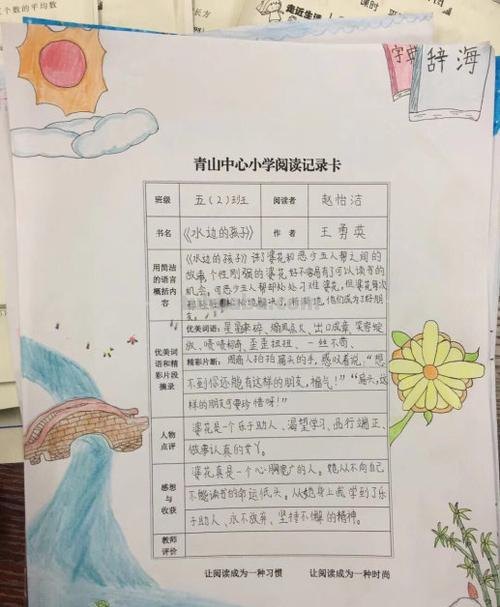 个数的平均数
长方
走近生活
课时
字典
辞海
青山中心小学阅读记录卡
班级 五(2)班 阅读者 赵怡洁
书名 《水边的孩子》 作者 王勇英
用简洁的语言概括内容
《水边的孩子》讲了婆花和恶少五人帮之间的
故事,个性刚强的婆花好不容易有了可以读书的
机会,可恶少五人帮却处处刁难婆花,但婆花每次
都轻松地解决了,渐渐地,他们成为了好朋
友。
优美词语和精彩片段摘录
优美词语:
出口成章、笑容绽
放、啧啧称奇、歪歪扭扭、一丝不苟、
精彩片断:周商人拍拍痛头的手,感叹着说:“想
不到你还能有这样的朋友,福气!”“痛头,这
样的朋友可要珍惜呀!”
人物点评
婆花是一个乐于助人、渴望学习、品行端正、
做事认真的女丫。
感想与收获
婆花真是一个心胸宽广的人。她从不向自己
不能读书的命运低头。从她身上我学到了乐
于助人、永不放弃、坚持不懈的精神。
教师评价
让阅读成为一种习惯 让阅读成为一种时尚